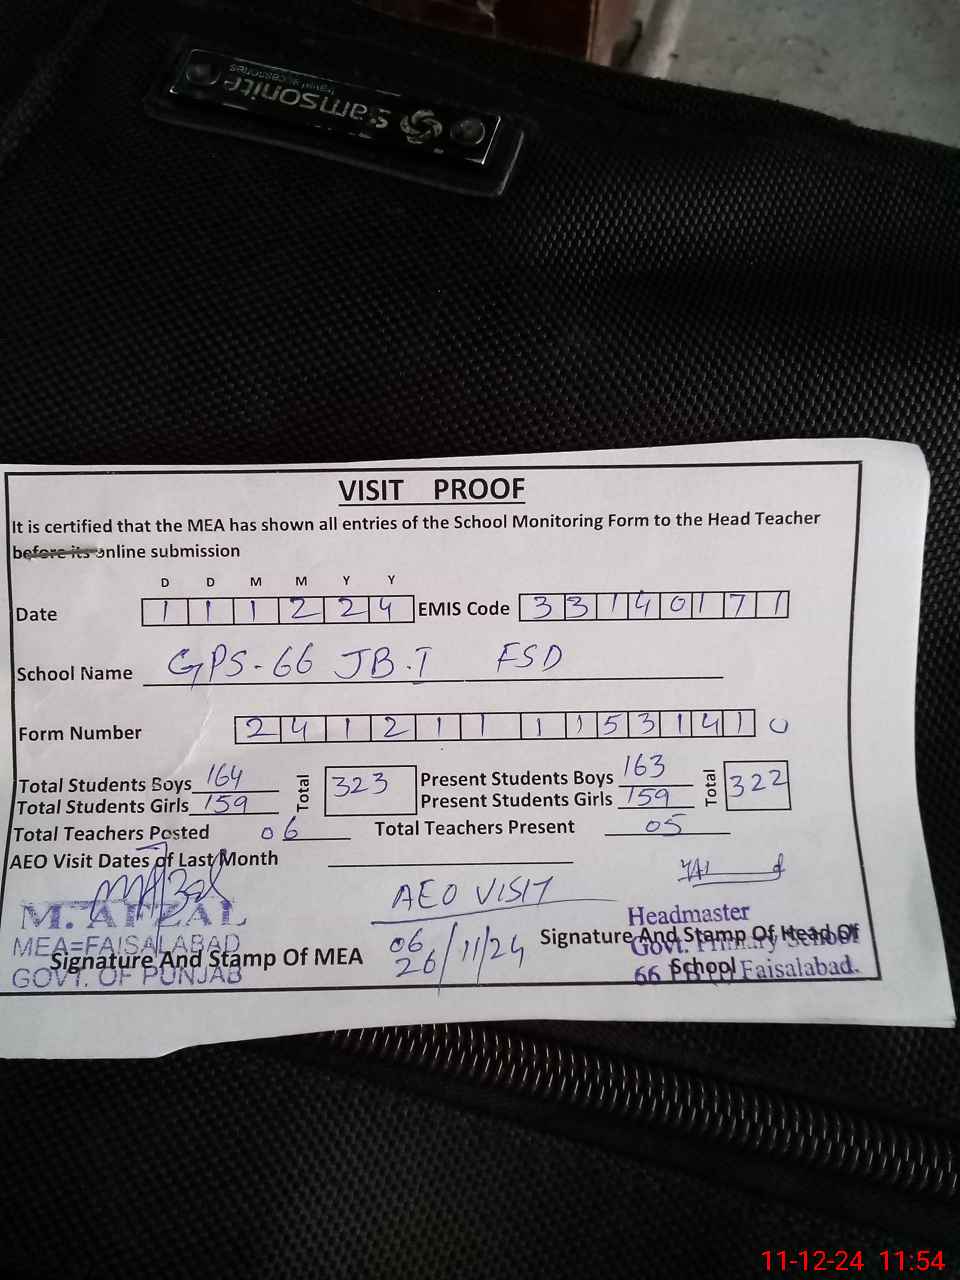 Samsonite
Travel Accessories
VISIT PROOF
It is certified that the MEA has shown all entries of the School Monitoring Form to the Head Teacher
before its online submission
D D M M Y Y
Date 1 1 1 2 2 4 EMIS Code 3 3 1 4 0 1 7 1
School Name GPS-66 JB.I FSD
Form Number 2 4 1 2 1 1 1 1 5 3 1 4 1 0
Total Students Boys 164 Total 323 Present Students Boys 163 Total 322
Total Students Girls 159 Present Students Girls 159
Total Teachers Posted 06 Total Teachers Present 05
AEO Visit Dates of Last Month
AEO VISIT
M. AFZAL
MEA=FAISALABAD
GOVT. OF PUNJAB
Signature And Stamp Of MEA
06
26/11/24
Headmaster
Govt. Primary School
66 Faisalabad.
Signature And Stamp Of Head Of
School
11-12-24 11:54